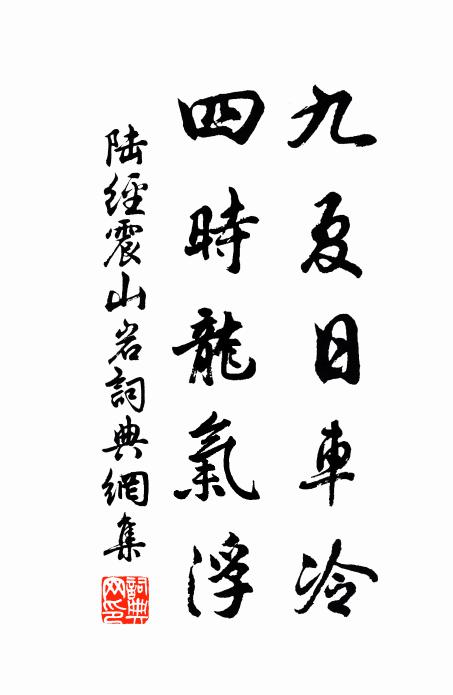 九夏日車冷
四時龍氣浮
陸經震山岩詞典網集
詞典網印